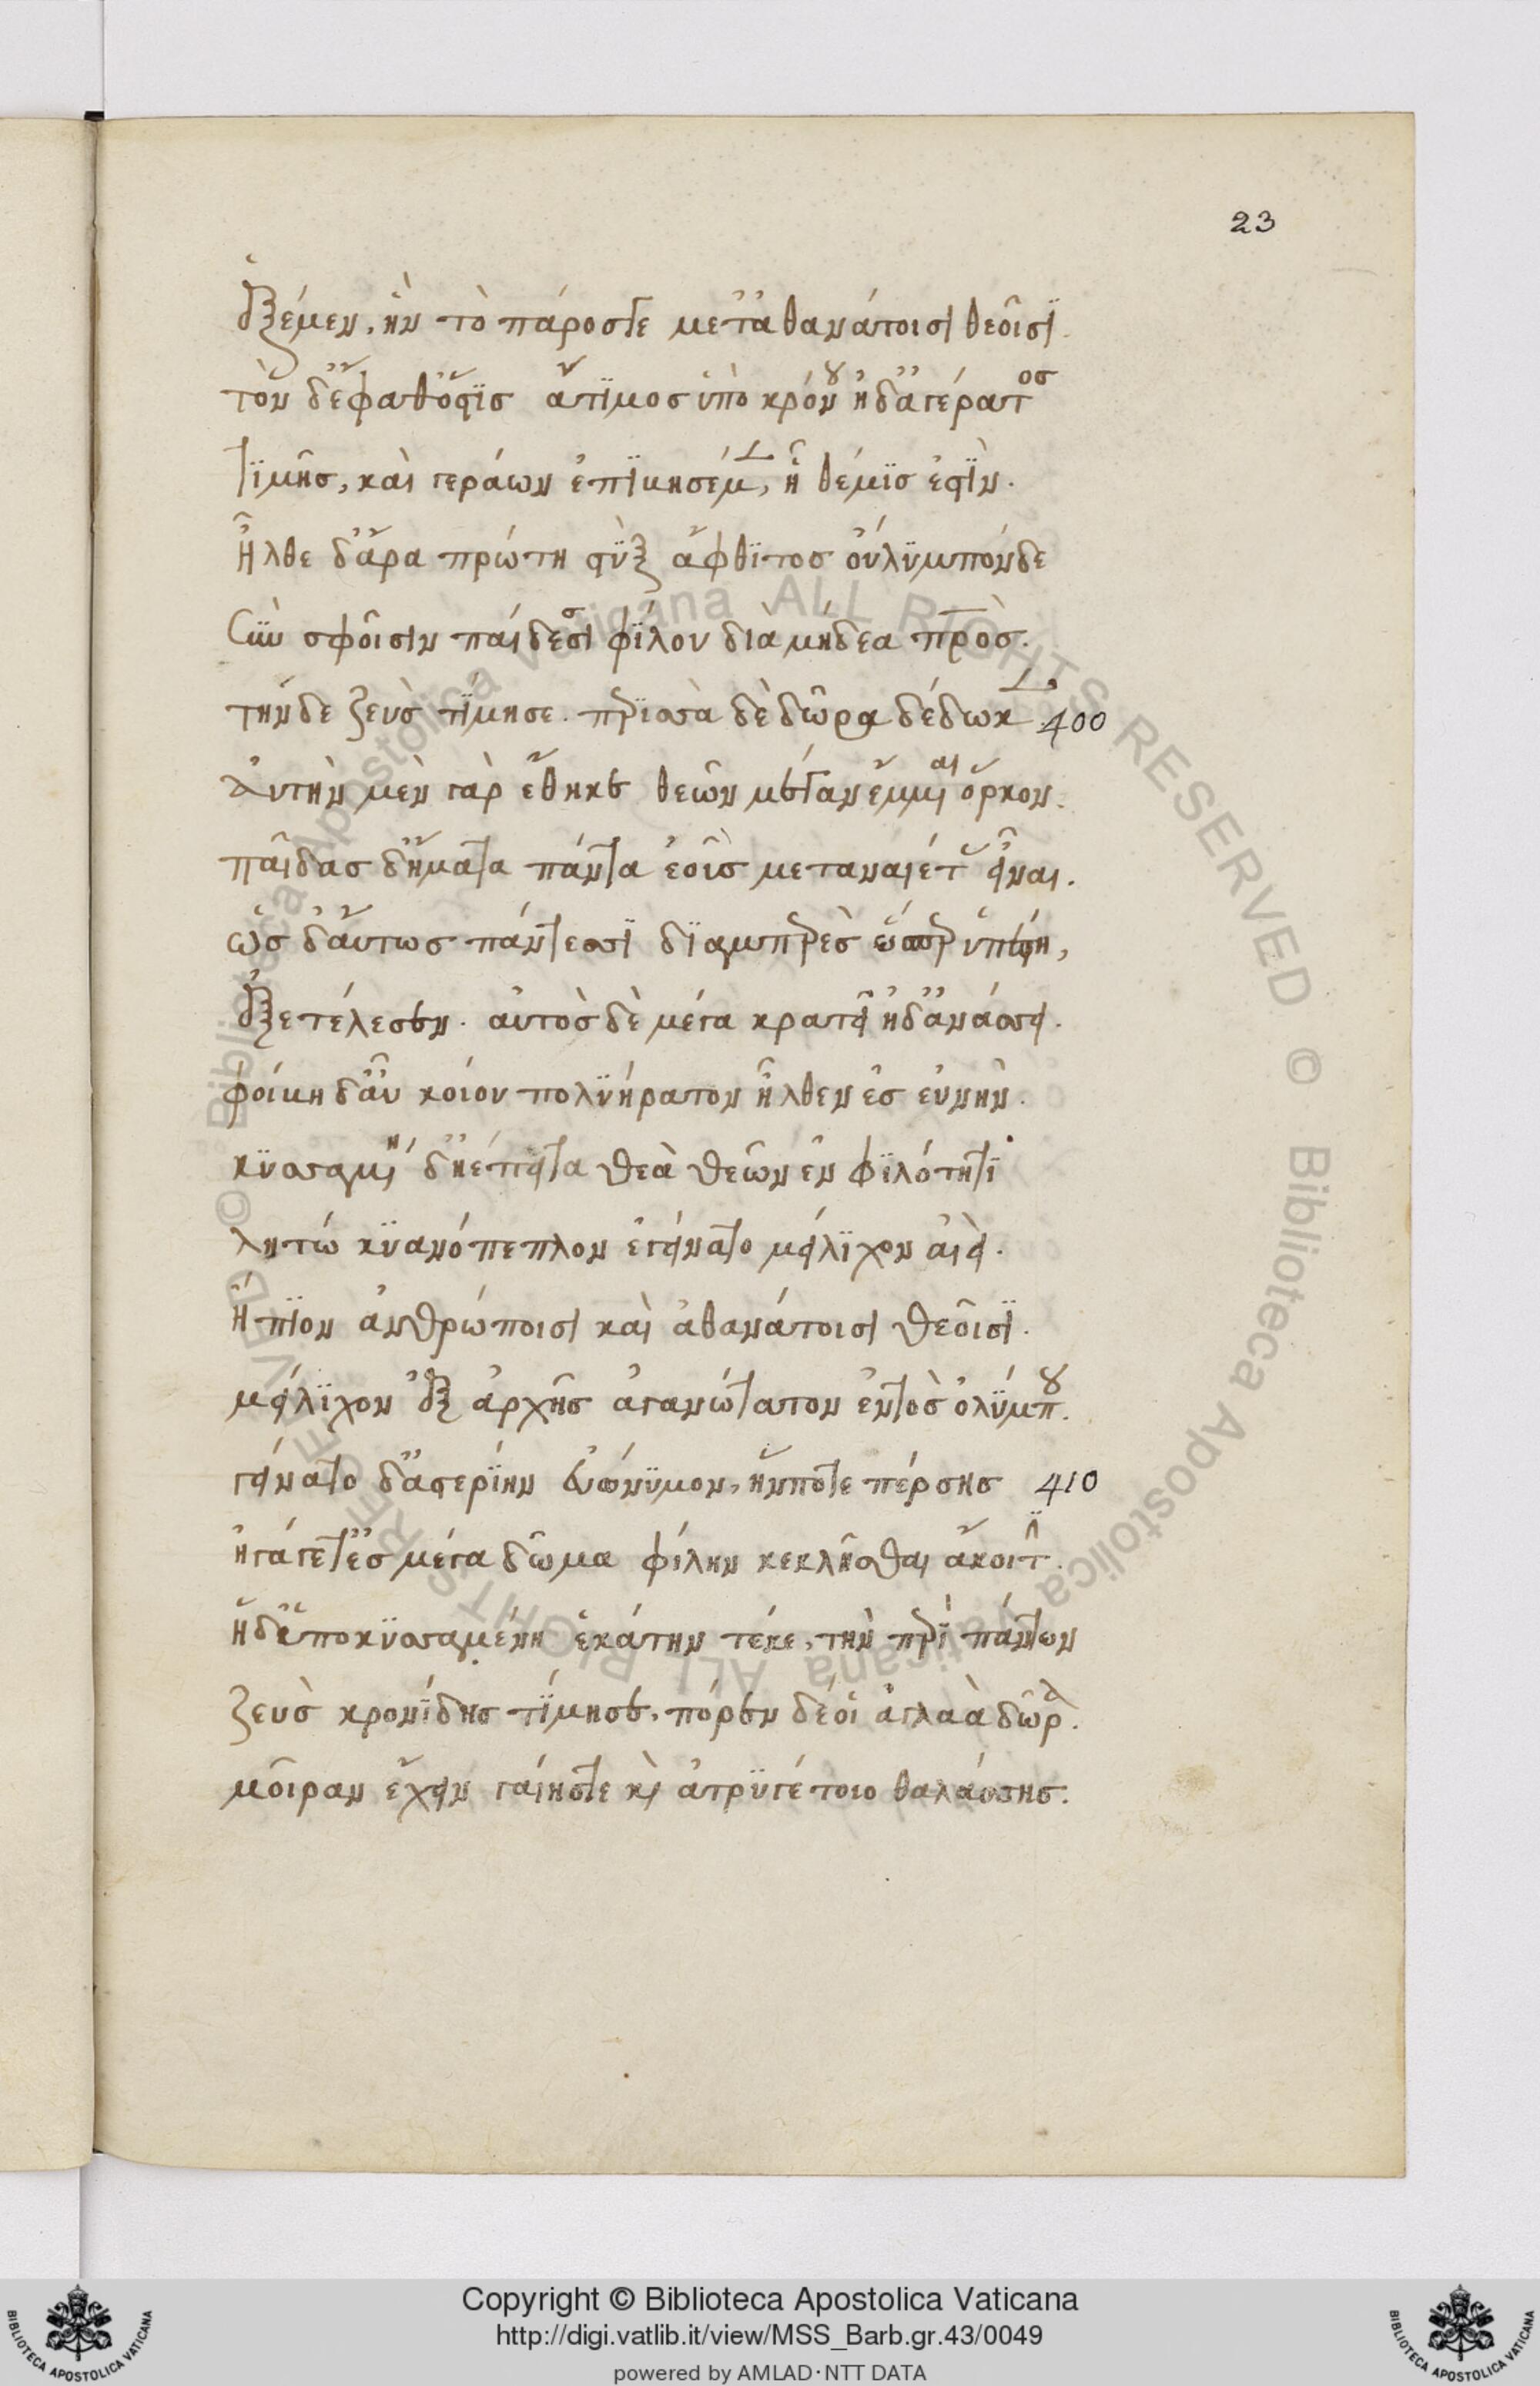 23
ἑξέμεν, ἣν τὸ πάροστε μετ' ἀθανάτοισι θεοῖσι.
τὸν δ' ἔφαθ' ὅστις ἄτιμος ὑπὸ κρόνου ἠδ' ἀγέραστος
τιμῆς, καὶ γεράων ἐπιβησέμεν, ᾗ θέμις ἐστίν.
ἦλθε δ' ἄρα πρώτη στὺξ ἄφθιτος οὐλυμπόνδε
σὺν σφοῖσιν παίδεσσι φίλου διὰ μήδεα πατρός.
τὴν δὲ ζεὺς τίμησε. περισσὰ δὲ δῶρα δέδωκεν. 400
αὐτὴν μὲν γὰρ ἔθηκε θεῶν μέγαν ἔμμεναι ὅρκον.
παῖδας δ' ἤματα πάντα ἑοῖς μεταναιέτας εἶναι.
ὡς δ' αὔτως πάντεσσι διαμπερὲς ὥσπερ ὑπέστη,
ἐξετέλεσεν. αὐτὸς δὲ μέγα κρατεῖ ἠδ' ἀνάσσει.
φοίβη δ' αὖ κοίου πολυήρατον ἦλθεν ἐς εὐνήν.
κυσσαμένη δ' ἤπειτα θεὰ θεῶν ἐν φιλότητι
λητὼ κυανόπεπλον ἐγείνατο μείλιχον αἰεί.
ἤπιον ἀνθρώποισι καὶ ἀθανάτοισι θεοῖσι.
μείλιχον ἐξ ἀρχῆς ἀγανώτατον ἐντὸς ὀλύμπου.
γείνατο δ' ἀστερίην εὐώνυμον, ἥν ποτε πέρσης 410
ἠγάγετ' ἐς μέγα δῶμα φίλην κεκλῆσθαι ἄκοιτιν.
ἡ δ' ὑποκυσσαμένη ἑκάτην τέκε, τὴν περὶ πάντων
ζεὺς κρονίδης τίμησε, πόρεν δέ οἱ ἀγλαὰ δῶρα.
μοῖραν ἔχειν γαίης τε καὶ ἀτρυγέτοιο θαλάσσης.
Copyright © Biblioteca Apostolica Vaticana
http://digi.vatlib.it/view/MSS_Barb.gr.43/0049
powered by AMLAD·NTT DATA